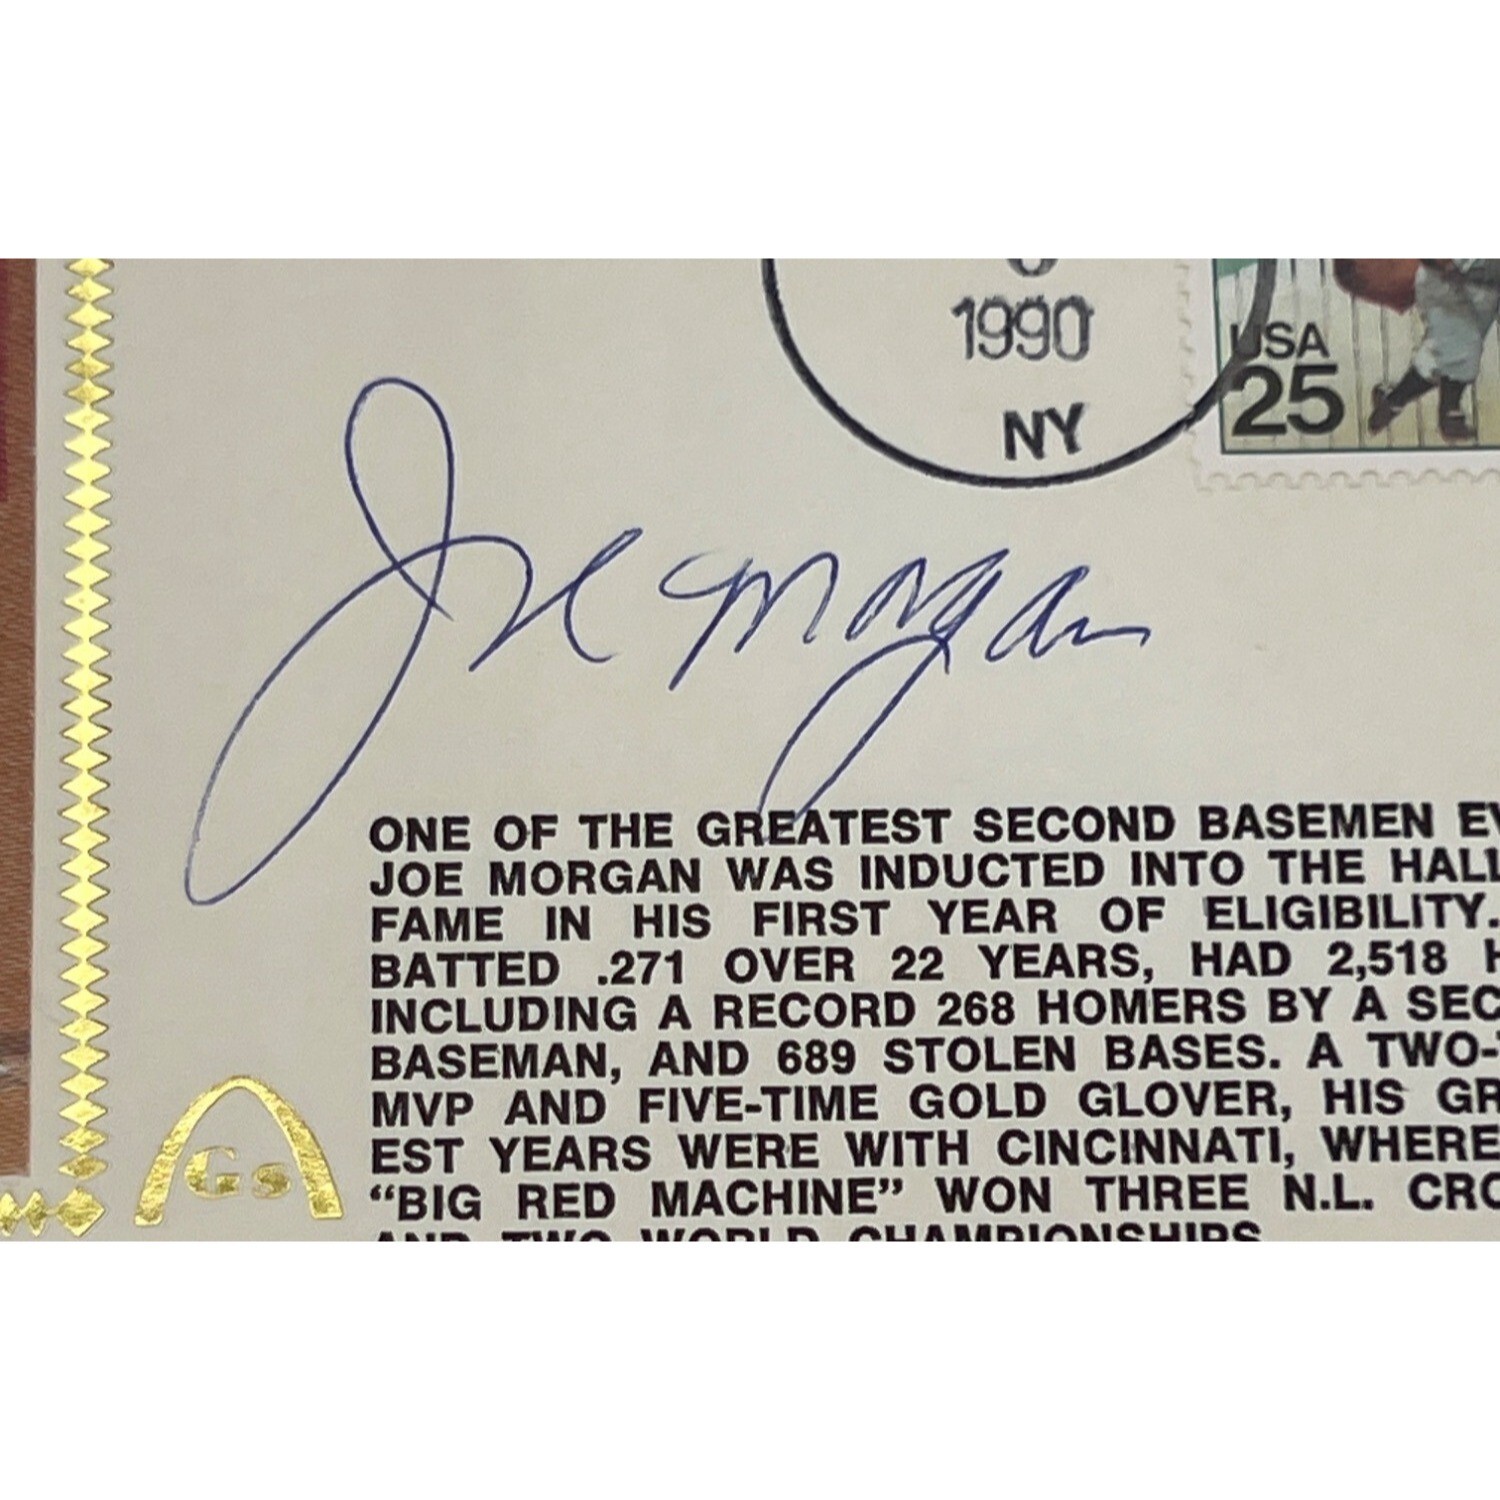 1990
NY
USA
25
Joe Morgan
ONE OF THE GREATEST SECOND BASEMEN EV
JOE MORGAN WAS INDUCTED INTO THE HALL
FAME IN HIS FIRST YEAR OF ELIGIBILITY.
BATTED .271 OVER 22 YEARS, HAD 2,518 H
INCLUDING A RECORD 268 HOMERS BY A SEC
BASEMAN, AND 689 STOLEN BASES. A TWO-
MVP AND FIVE-TIME GOLD GLOVER, HIS GR
EST YEARS WERE WITH CINCINNATI, WHERE
“BIG RED MACHINE” WON THREE N.L. CRO
AND TWO WORLD CHAMPIONSHIPS.
Gs